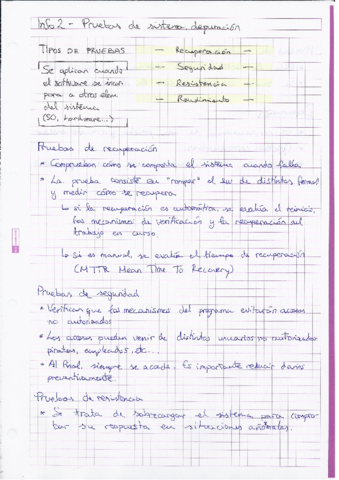 InG2 - Pruebas de sistema, depuración
TIPOS DE PRUEBAS
Se aplican cuando
el software se incor-
para a otros elem
del sistema
(SO, hardware...)
- Recuperación -
- Seguridad -
- Resistencia -
- Rendimiento -
Pruebas de recuperación
* Comprueban cómo se comporta el sistema cuando falla
* La prueba consiste en "romper" el sw de distintas formas
y medir cómo se recupera.
↳ si la recuperación es automática, se evalúa el reinicio,
los mecanismos de verificación y la recuperación del
trabajo en curso
↳ Si es manual, se evalúa el tiempo de recuperación
(MTTR Mean Time To Recovery)
Pruebas de seguridad
* Verifican que los mecanismos del programa evitarán accesos
no autorizados
* Los accesos pueden venir de distintos usuarios no autorizados
piratas, empleados etc...
* Al final, siempre se accede. Es importante reducir daños
preventivamente.
Pruebas de resistencia
* Se trata de sobrecargar el sistema para compro
bar su respuesta en situaciones anómalas.